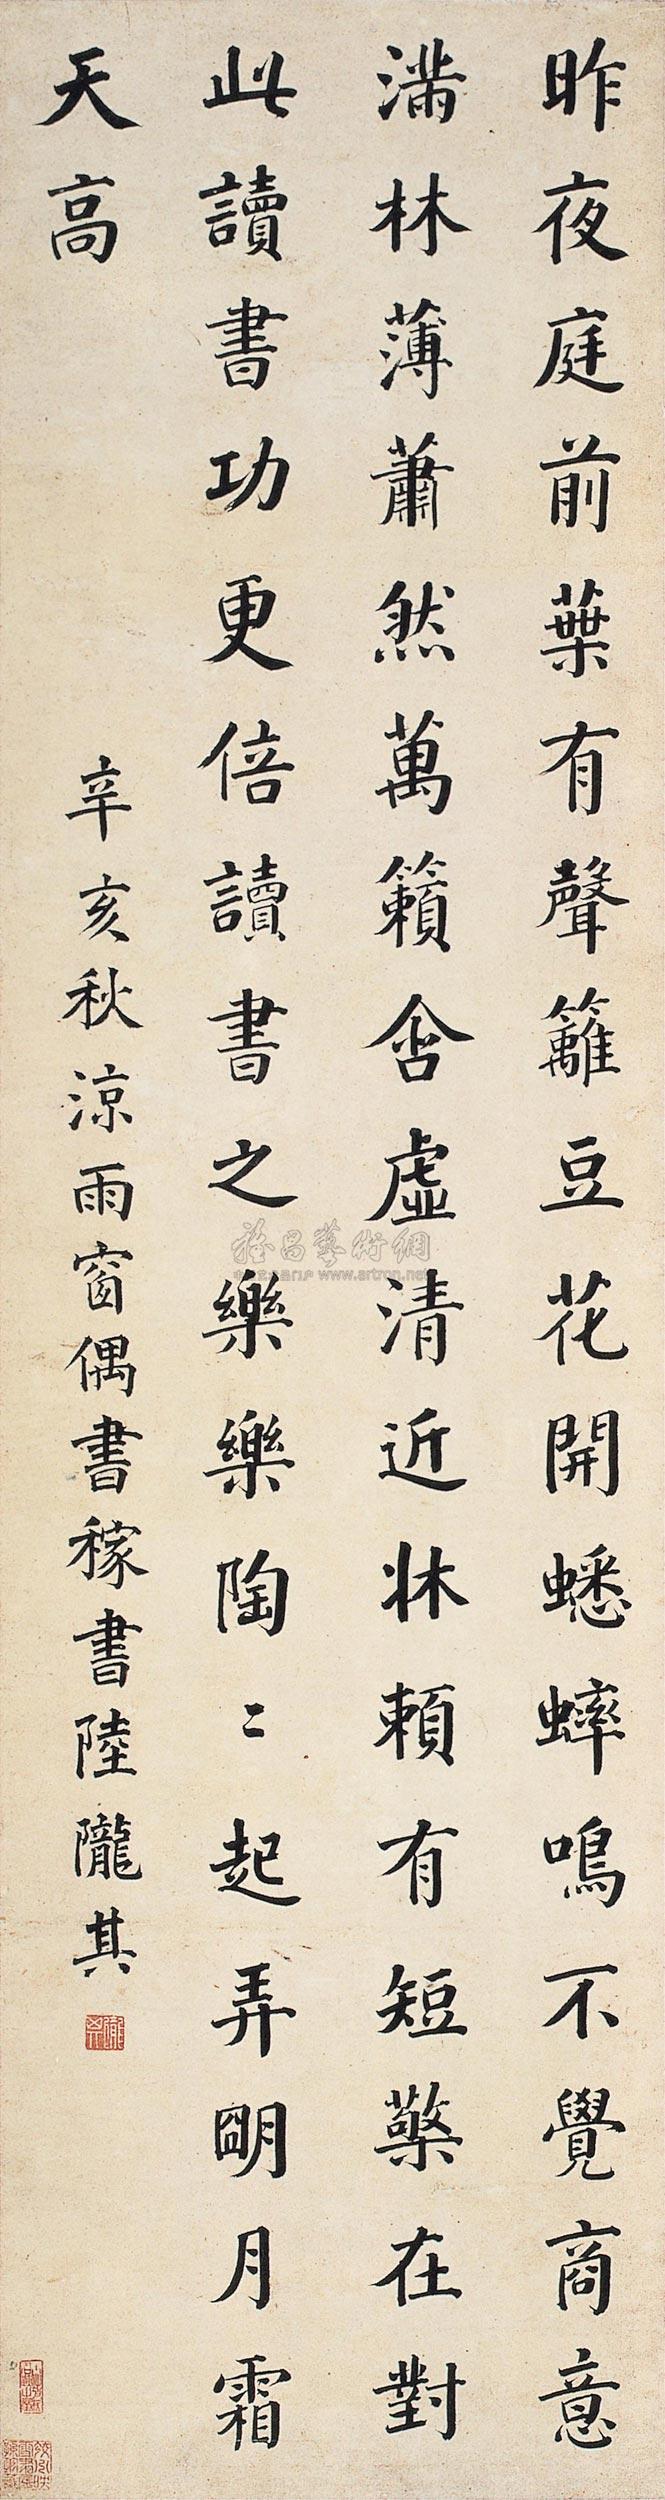 昨夜庭前葉有聲籬豆花開蟋蟀鳴不覺商意
滿林薄蕭然萬籟含虛清近牀賴有短檠在對
此讀書功更倍讀書之樂樂陶〻起弄明月霜
天高
辛亥秋涼雨窗偶書稼書陸隴其
www.artron.net